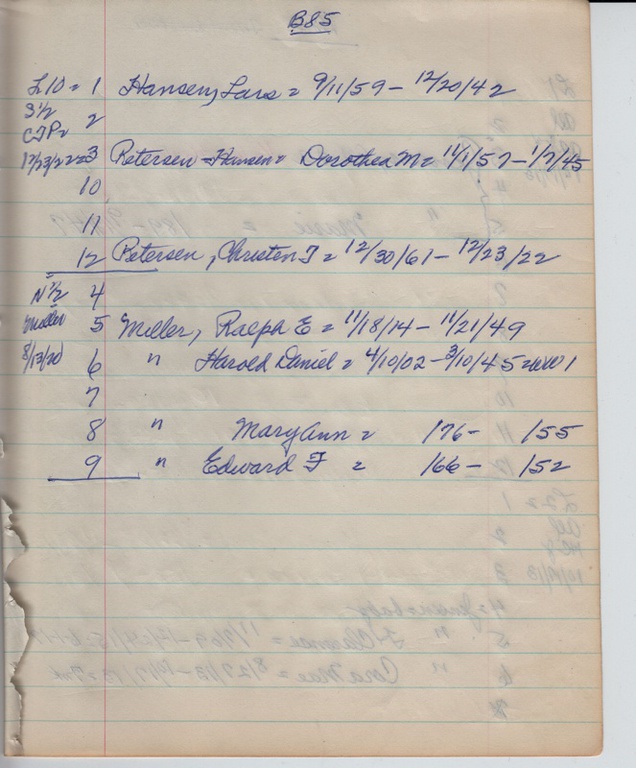 B85
L10 = 1 Hansen, Lars = 9/11/59 - 12/20/42
S 1/2
CJP= 2
12/23/22=3 Petersen = Hansen = Dorothea M = 11/1/57 - 1/7/45
10
11
12 Petersen, Christen J = 12/30/61 - 12/23/22
N 1/2 4
Miller 5 Miller, Ralph E = 11/18/14 - 11/21/49
8/13/20 6 " Harold Daniel = 4/10/02 - 3/10/45 = WW 1
7
8 " Mary Ann = 176 - 155
9 " Edward F = 166 - 152